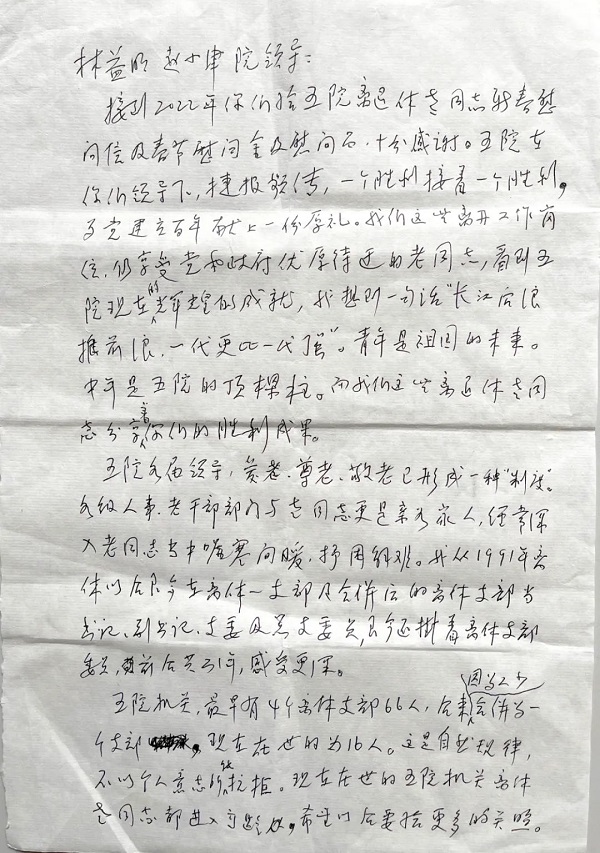 林益明 赵小津 院领导：
接到2022年你们给五院离退休老同志新春慰
问信及春节慰问金及慰问品，十分感谢。五院在
你们领导下，捷报频传，一个胜利接着一个胜利，
为党建立百年献上一份厚礼。我们这些离开工作岗
位，仍享受党和政府优厚待遇的老同志，看到五
院现在的辉煌的成就，我想到一句话“长江后浪
推前浪，一代更比一代强”。青年是祖国的未来。
中年是五院的顶梁柱。而我们这些离退休老同
志分享着你们的胜利成果。
五院各届领导，爱老、尊老、敬老已形成一种“制度”。
各级人事、老干部部门与老同志更是亲如家人，经常深
入老同志当中嘘寒问暖，抒困解难。我从1991年离
休以后至今在离休一支部及合併后的离休支部当
书记、副书记、支委及老支委员，至今还挂着离休支部
委员，前后共31年，感受更深。
五院机关，最早有4个离休支部66人，后来因为人少合併为一
个支部，现在在世的为16人。这是自然规律，
不以个人意志所能抗拒。现在在世的五院机关离休
老同志都进入高龄，希望以后要给更多的关照。